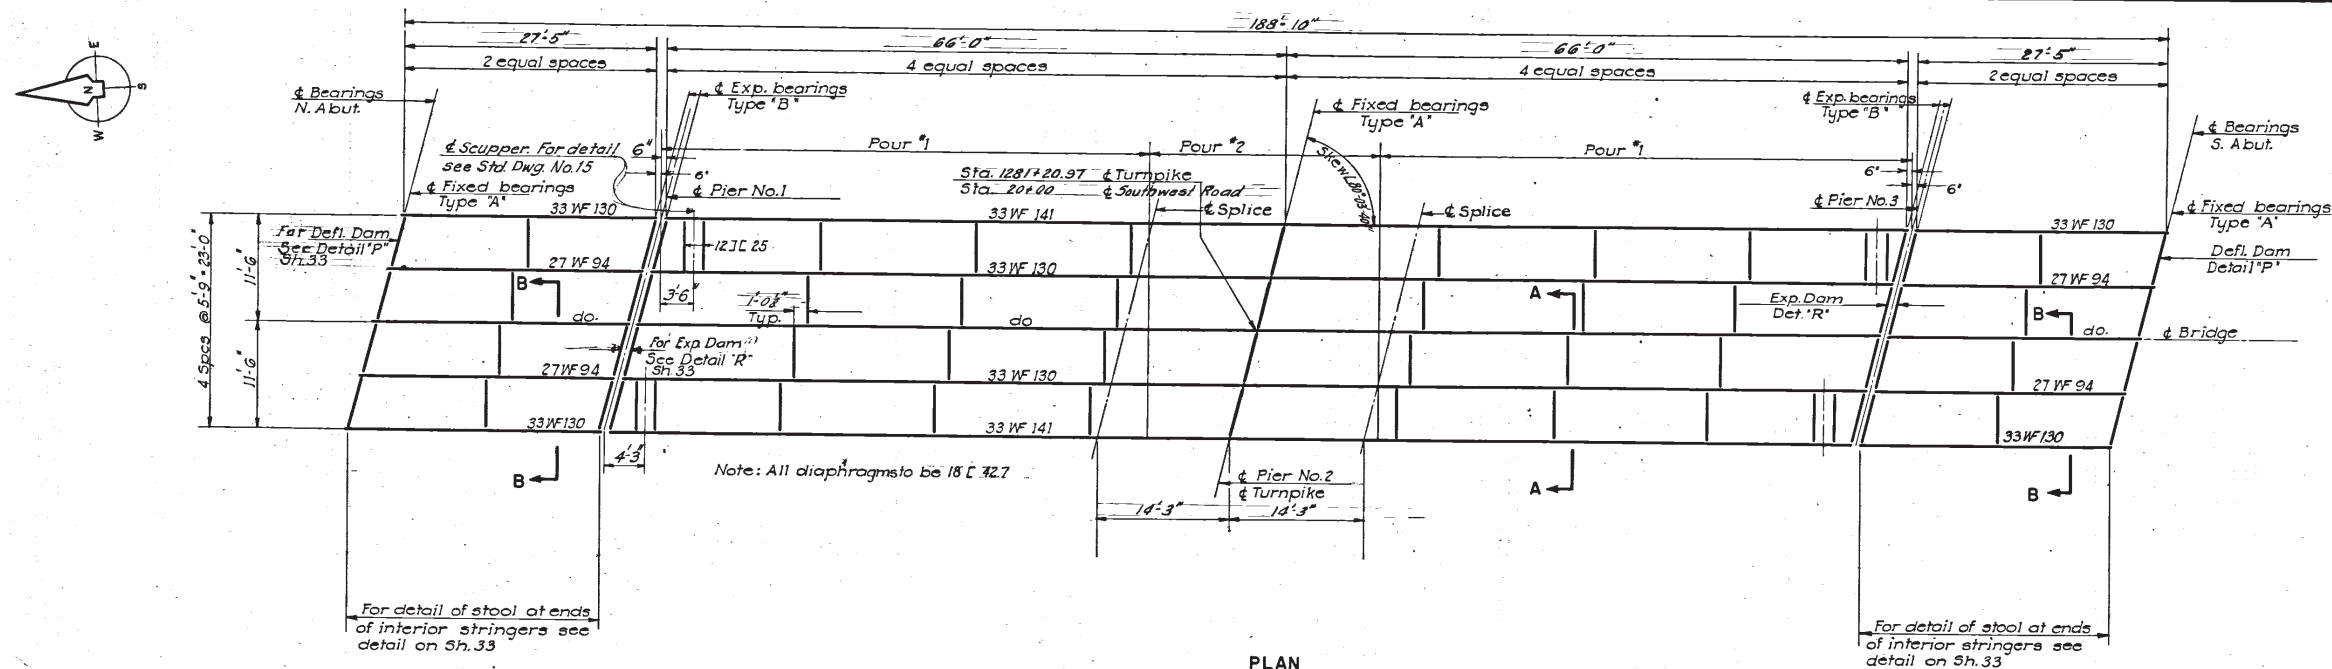 188'-10"
27'-5"
66'-0"
66'-0"
27'-5"
2 equal spaces
4 equal spaces
4 equal spaces
2 equal spaces
E
N
S
W
₵ Bearings
N. Abut.
₵ Exp. bearings
Type "B"
₵ Fixed bearings
Type "A"
₵ Exp. bearings
Type "B"
₵ Bearings
S. Abut.
₵ Scupper. For detail
see Std. Dwg. No.15
6"
6"
Pour #1
Pour #2
Pour #1
Skew ∠80°-03'-40"
6"
6"
Sta. 1281+20.97 ₵ Turnpike
Sta. 20+00 ₵ Southwest Road
₵ Fixed bearings
Type "A"
₵ Pier No.1
₵ Splice
₵ Splice
₵ Pier No.3
₵ Fixed bearings
Type "A"
33 WF 130
33 WF 141
33 WF 130
For Defl. Dam
See Detail "P"
Sh. 33
12 ][ 25
Defl. Dam
Detail "P"
4 Spcs @ 5'-9" = 23'-0"
11'-6"
11'-6"
27 WF 94
33 WF 130
27 WF 94
B
3'-6"
Typ.
A
Exp. Dam
Det. "R"
B
do.
do
do.
₵ Bridge
For Exp. Dam
See Detail "R"
Sh. 33
27 WF 94
33 WF 130
27 WF 94
33 WF 130
33 WF 141
33 WF 130
4'-3"
B
Note: All diaphragms to be 18 [ 42.7
₵ Pier No.2
₵ Turnpike
A
B
14'-3"
14'-3"
For detail of stool at ends
of interior stringers see
detail on Sh. 33
For detail of stool at ends
of interior stringers see
detail on Sh. 33
PLAN